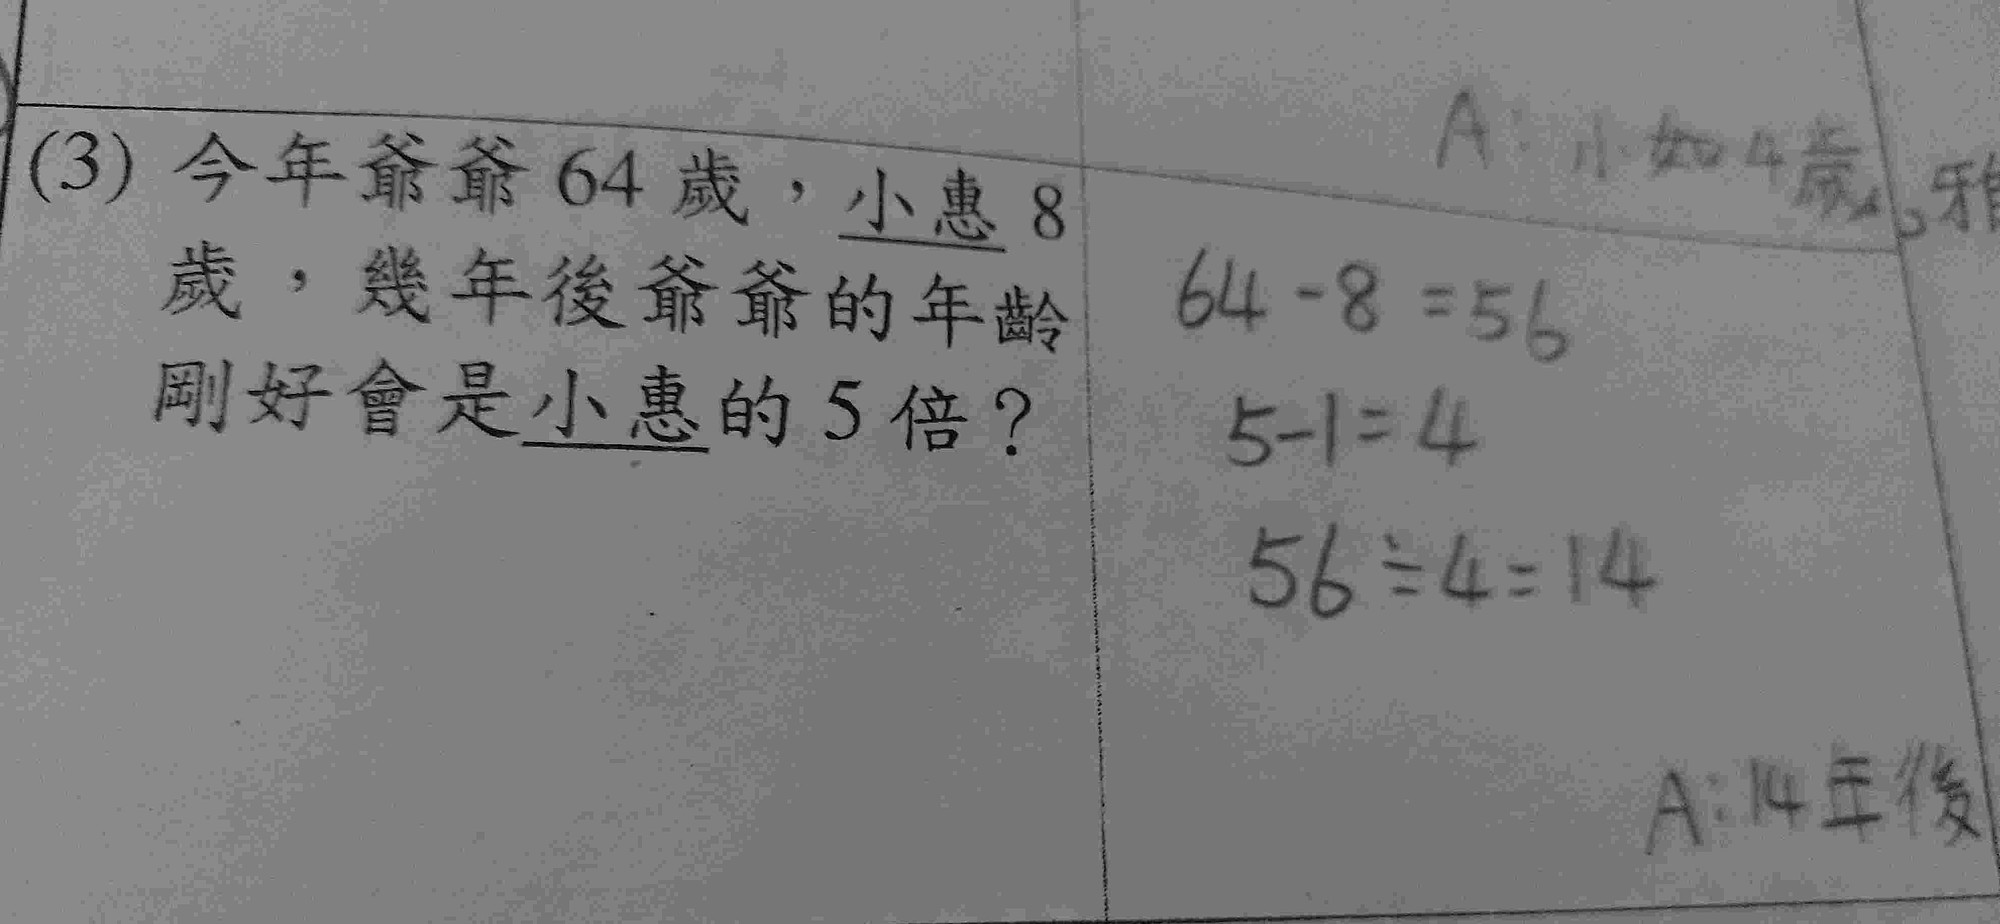 A：小如4歲,雅
(3) 今年爺爺 64 歲，小惠 8
歲，幾年後爺爺的年齡
剛好會是小惠的 5 倍？
64-8=56
5-1=4
56÷4=14
A:14年後